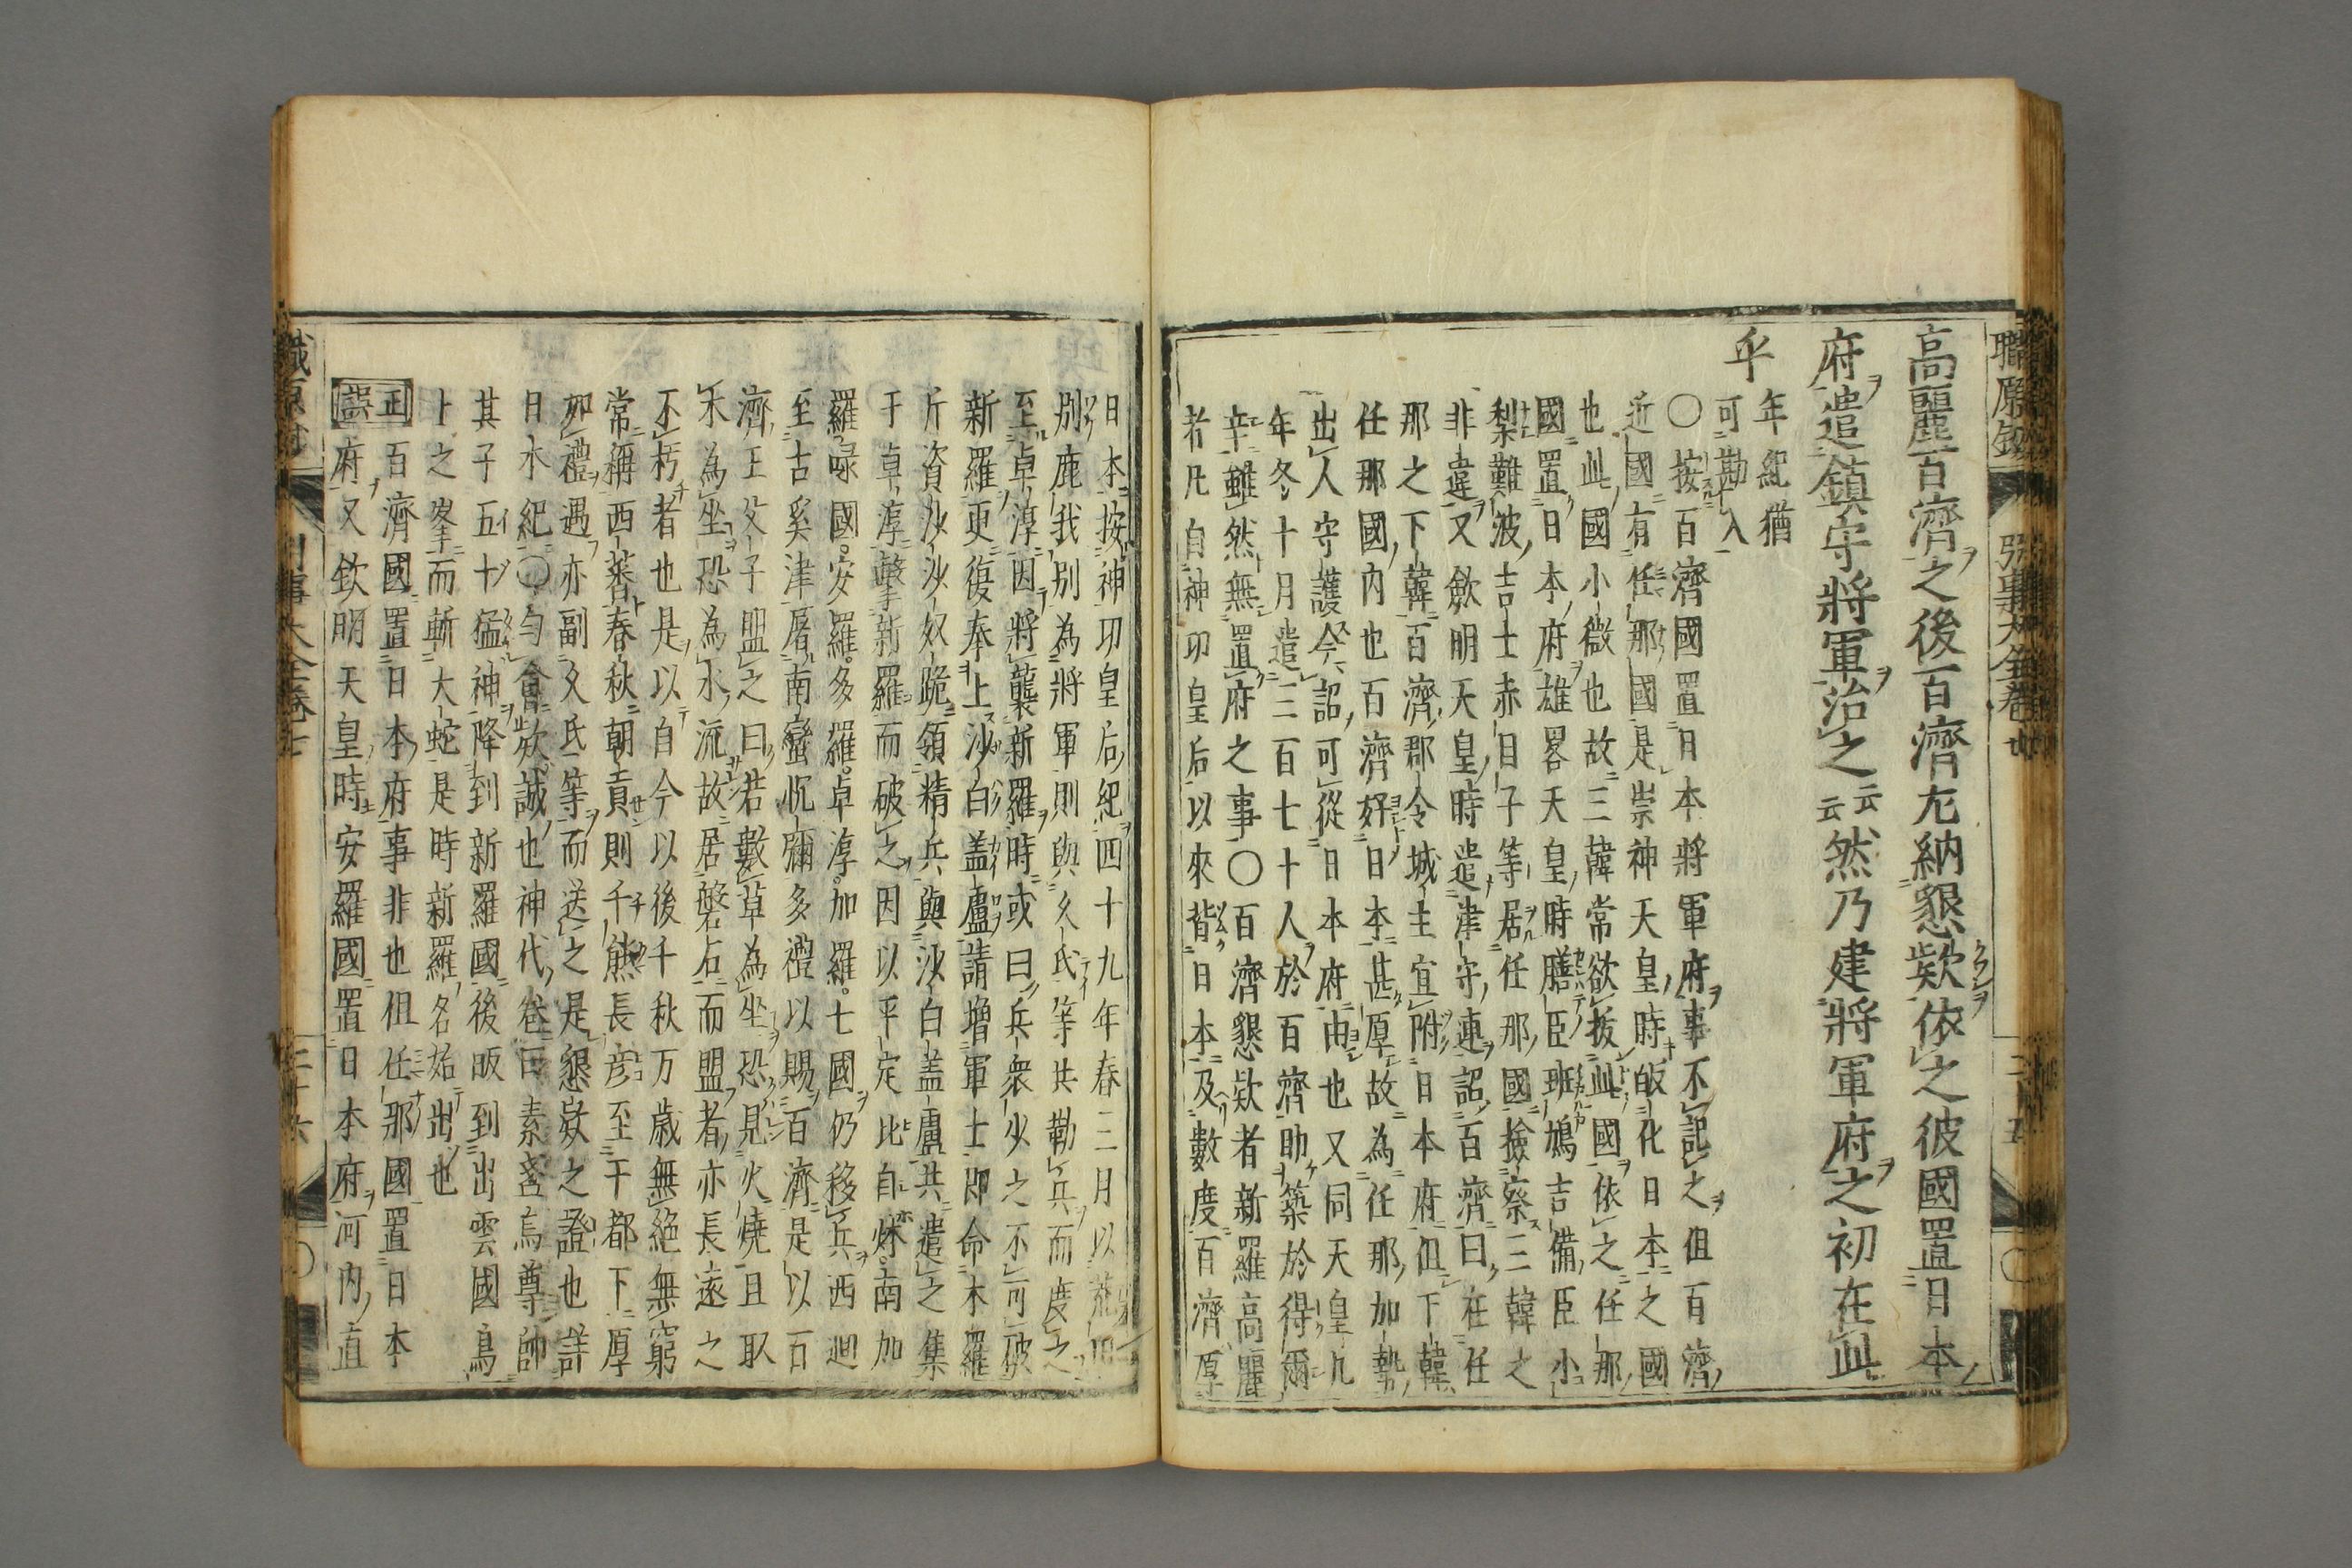 職原鈔 引事大全卷廿
高麗百濟之後百濟尤納懇欵依之彼國置日本
府遣鎮守將軍治之云云然乃建將軍府之初在此
乎
年紀猶
可勘入
○按百濟國置日本將軍府事不記之但百濟
近國有任那國是崇神天皇時皈化日本之國
也此國小微也故三韓常欲抜此國依之任那
國置日本府雄畧天皇時膳臣班鳩吉備臣小
梨難波吉士赤目子等居任那國撿察三韓之
非違又欽明天皇時遣津守連詔百濟曰在任
那之下韓百濟郡令城主宜附日本府但下韓
任那國内也百濟好日本甚厚故為任那加勢
出人守護今詔可從日本府由也又同天皇九
年冬十月遣三百七十人於百濟助築於得爾
辛雖然無置府之事○百濟懇欵者新羅高麗
者凡自神功皇后以來皆日本及數度百濟厚
日本按神功皇后紀四十九年春三月以荒田
別鹿我別為將軍則與久氐等共勒兵而度之
至卓淳因將襲新羅時或曰兵衆少之不可破
新羅更復奉上沙白盖盧請増軍士即命木羅
斤資沙沙奴跪領精兵與沙白盖盧共遣之集
于卓淳擊新羅而破之因以平定比自㶱南加
羅㖨國安羅多羅卓淳加羅七國仍移兵西廻
至古奚津屠南蠻忱彌多禮以賜百濟是以百
濟王父子盟之曰若敷草為坐恐見火燒且取
木為坐恐為水流故居磐石而盟者亦長遠之
不朽者也是以自今以後千秋万歲無絕無窮
常稱西蕃春秋朝貢則千熊長彦至于都下厚
加禮遇亦副久氐等而送之是懇欵之證也詳
日本紀○勻會欵誠也神代卷曰素盞烏尊帥
其子五十猛神降到新羅國後皈到出雲國鳥
上之峯而斬大蛇是時新羅名始出也
正百濟國置日本府事非也但任那國置日本
誤府又欽明天皇時安羅國置日本府河内直
職原鈔 引事大全卷廿 二十六